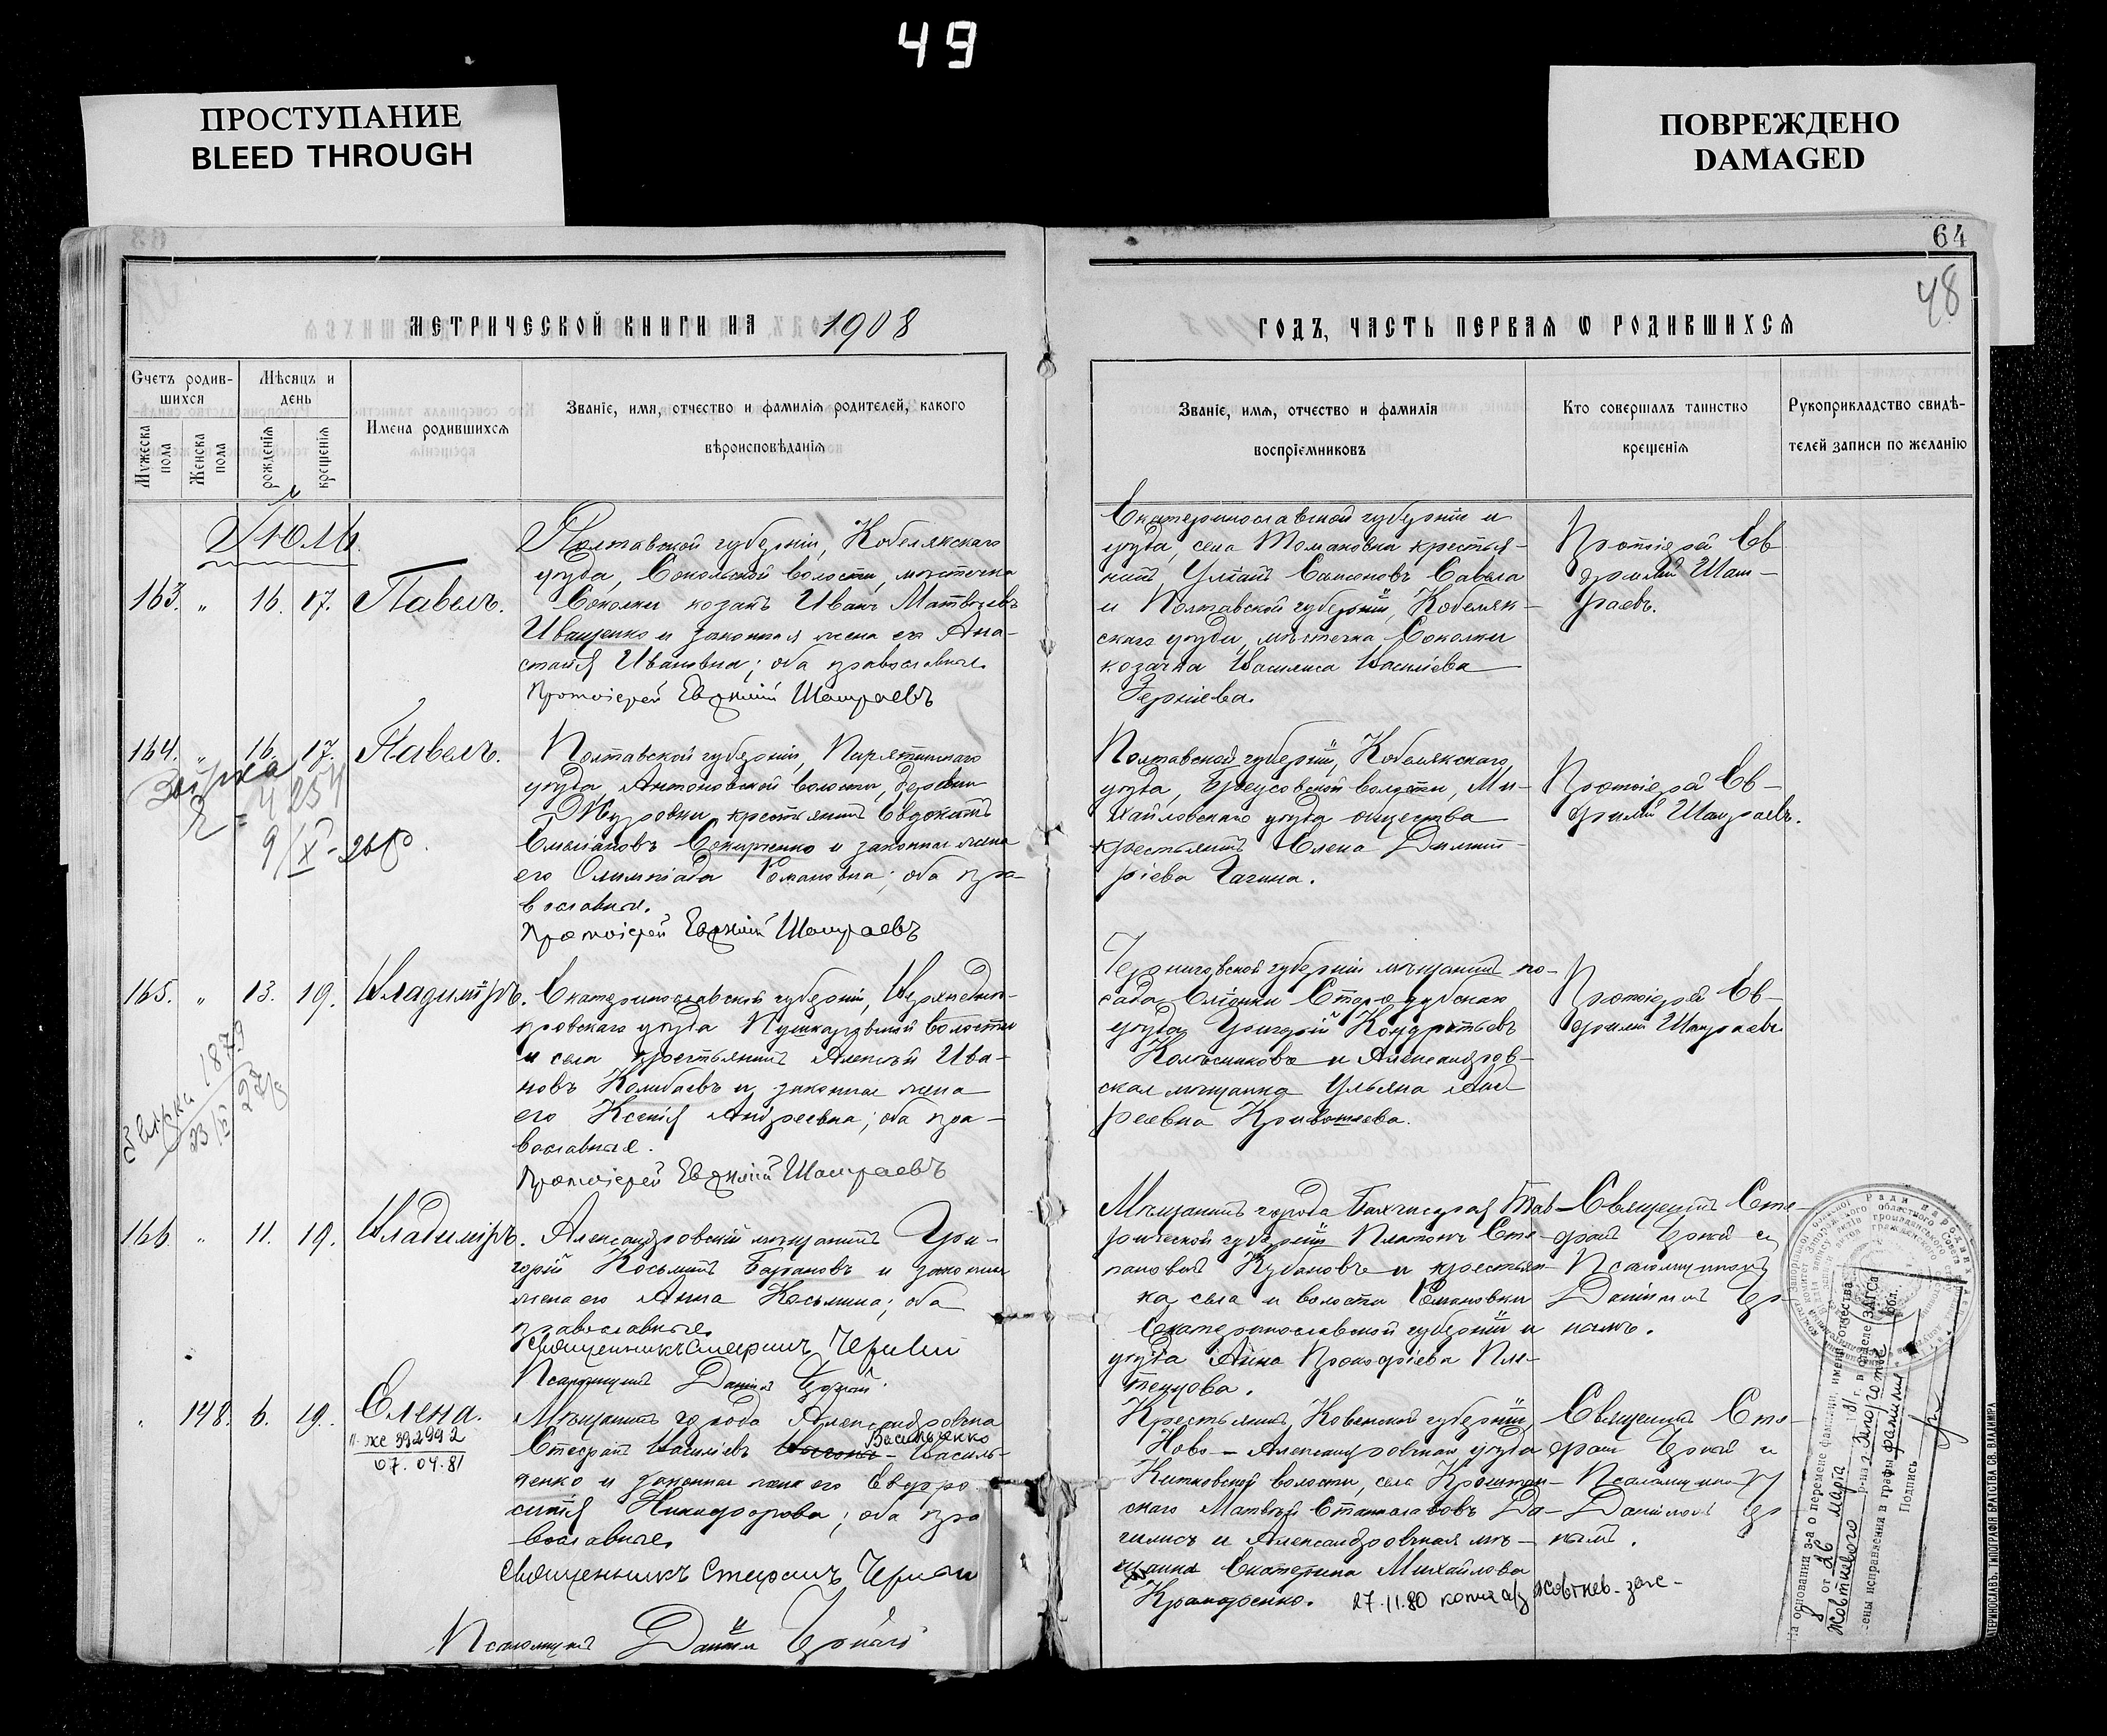 49
ПРОСТУПАНИЕ
BLEED THROUGH
ПОВРЕЖДЕНО
DAMAGED
64
48
МЕТРИЧЕСКОЙ КНИГИ НА 1908
ГОДЪ, ЧАСТЬ ПЕРВАЯ Ѡ РОДИВШИХСЯ
Счетъ родив-
шихся
Мужеска
пола
Женска
пола
Мѣсяцъ и
день
рожденія
крещенія
Имена родившихся
Званіе, имя, отчество и фамилія родителей, какого
вѣроисповѣданія
Званіе, имя, отчество и фамилія
воспріемниковъ
Кто совершалъ таинство
крещенія
Рукоприкладство свидѣ-
телей записи по желанію
Июль.
163. " 16. 17. Павелъ.
Полтавской губерніи, Кобелякскаго
уѣзда, Сокольской волости, мѣстечка
Соколки козакъ Иванъ Матвѣевъ
Иващенко и законная жена его Ана-
стасія Ивановна; оба православные.
Протоіерей Евѳимій Шамраевъ
Екатеринославской губерніи и
уѣзда, села Томаковки крестья-
нинъ Уліанъ Самсоновъ Савела
и Полтавской губерніи, Кобеляк-
скаго уѣзда, мѣстечка Соколки
козачка Василиса Василіева
Зерніева.
Протоіерей Ев-
ѳимій Шам-
раевъ.
164. " 16. 17. Павелъ.
Полтавской губерніи, Пирятинскаго
уѣзда, Антоновской волости, деревни
крестьянинъ Евдокимъ
Емеліановъ Сокиренко и законная жена
его Олимпіада Романовна; оба пра-
вославные.
Протоіерей Евѳимій Шамраевъ
Полтавской губерніи, Кобелякскаго
уѣзда, Бреусовской волости, Ми-
хайловскаго уѣзда общества
крестьянинъ Елена Димит-
ріева Гагина.
Протоіерей Ев-
ѳимій Шамраевъ.
165. " 13. 19. Владиміръ.
Екатеринославской губерніи, Верхнеднѣ-
провскаго уѣзда Пушкаревской волости
и села крестьянинъ Алексѣй Ива-
новъ Колибаевъ и законная жена
его Ксенія Андреевна; оба пра-
вославные.
Протоіерей Евѳимій Шамраевъ
Черниговской губерніи мѣщанинъ по-
сада Еліонки Стародубскаго
уѣзда Григорій Кондратьевъ
Колѣсниковъ и Александров-
ская мѣщанка Ульяна Анд
реевна Кривошеева.
Протоіерей Ев-
ѳимій Шамраевъ
166 " 11. 19. Владиміръ.
Александровскій мѣщанинъ Гри-
горій Косьминъ Барановъ и законная
жена его Анна Косьмина; оба
православные.
Священникъ Стефанъ Черный
Псаломщикъ Даніилъ
Мѣщанинъ города Бахчисарая Тав-
рической губерніи Платонъ Сте-
пановъ Кубановъ и крестьян-
ка села и волости Томаковки
Екатеринославской губерніи и
уѣзда Анна Прокофіева Пле-
тенцова.
Священникъ Сте-
фанъ Черный съ
Псаломщикомъ
Даніиломъ Чер-
нымъ.
" 148. 6. 19. Елена.
II-же 392992
07.04.81
Мѣщанинъ города Александровска
Стефанъ Василіевъ Василь-
Васильченко
ченко и законная жена его Евфро
синія Никифорова; оба пра
вославные.
Священникъ Стефанъ Черный
Псаломщикъ Даніилъ
Крестьянинъ Ковенской губерніи,
Ново-Александровскаго уѣзда
волости, села
скаго Матвѣй Станиславовъ Да-
гилисъ и Александровская мѣ-
щанка Екатерина Михайлова
Крамаренко. 27.11.80 копия а/з
Священникъ Сте-
фанъ Черный и
Псаломщикъ
Даніиломъ Чер
нымъ.
На основании з-а о перемене фамилии, имени, отчества
от 26 марта 81 г. в отделе ЗАГСа
Жовтневого р-на г. Запорожье обл.
исправления в графы фамилия
Подпись
ЕКАТЕРИНОСЛАВЪ. ТИПОГРАФІЯ БРАТСТВА СВ. ВЛАДИМІРА